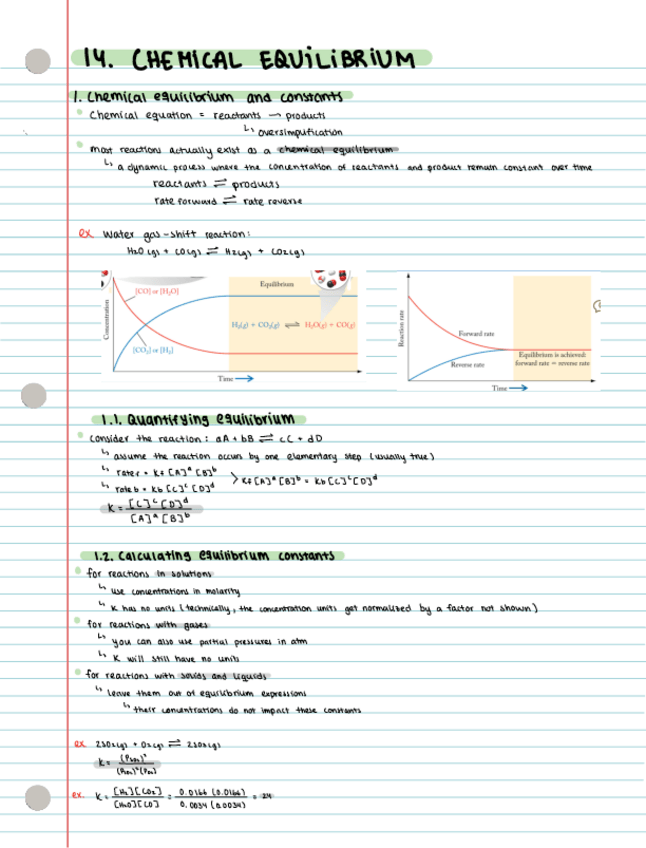 14. CHEMICAL EQUILIBRIUM
1. Chemical equilibrium and constants
Chemical equation = reactants → products
↳ oversimplification
most reactions actually exist as a chemical equilibrium
↳ a dynamic process where the concentration of reactants and product remain constant over time
reactants ⇌ products
rate forward ⇌ rate reverse
ex Water gas-shift reaction:
H2O(g) + CO(g) ⇌ H2(g) + CO2(g)
[CO] or [H2O]
Equilibrium
Concentration
H2(g) + CO2(g) ⇌ H2O(g) + CO(g)
[CO2] or [H2]
Time →
Reaction rate
Forward rate
Reverse rate
Equilibrium is achieved:
forward rate = reverse rate
Time →
1.1. Quantifying equilibrium
consider the reaction: aA + bB ⇌ cC + dD
↳ assume the reaction occurs by one elementary step (usually true)
↳ rate f = Kf [A]^a [B]^b
↳ rate b = Kb [C]^c [D]^d
> Kf [A]^a [B]^b = Kb [C]^c [D]^d
K = [C]^c [D]^d
[A]^a [B]^b
1.2. Calculating equilibrium constants
for reactions in solutions
↳ use concentrations in molarity
↳ K has no units (technically, the concentration units get normalized by a factor not shown)
for reactions with gases
↳ you can also use partial pressures in atm
↳ K will still have no units
for reactions with solids and liquids
↳ leave them out of equilibrium expressions
↳ their concentrations do not impact these constants
ex
K =
ex. K = [H2][CO2] = 0.0166 (0.0166) = 24
[H2O][CO] 0.0034 (0.0034)